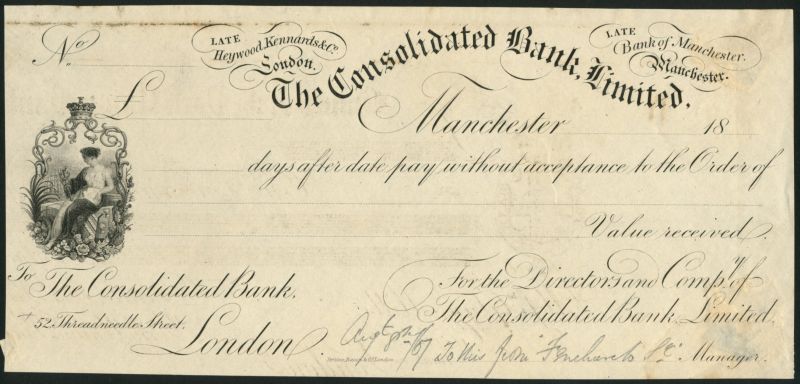 No
LATE
Heywood, Kennards & Co.
London.
The Consolidated Bank, Limited.
LATE
Bank of Manchester.
Manchester.
£
Manchester 18
days after date pay without acceptance to the Order of
Value received.
To
The Consolidated Bank,
52, Threadneedle Street,
London
For the Directors and Compy. of
The Consolidated Bank, Limited.
To this from Fenchurch St.
Manager.